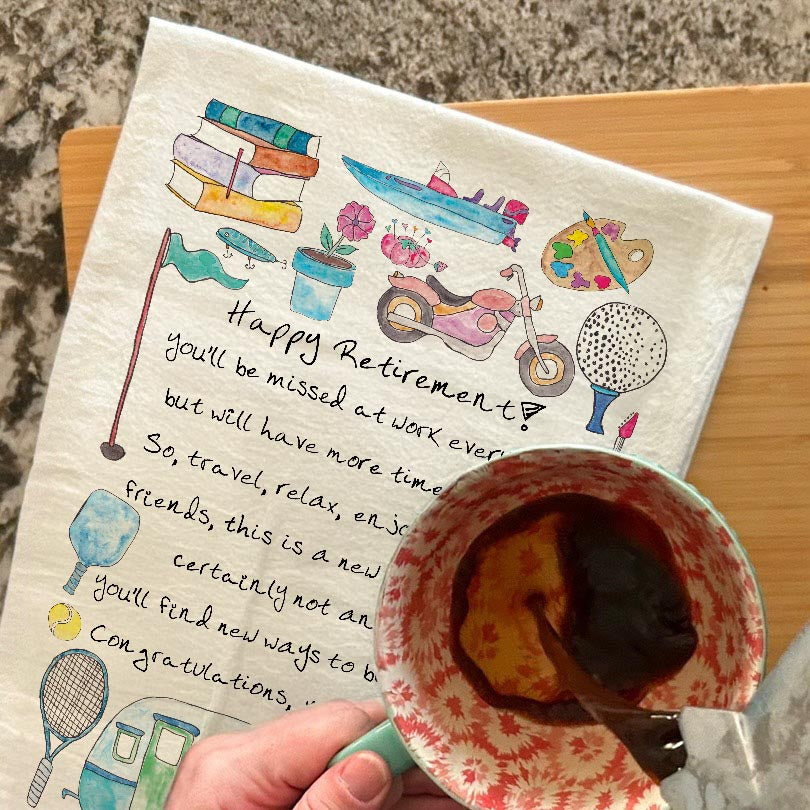 Happy Retirement!
you'll be missed at work ever
but will have more time
So, travel, relax, enjo
friends, this is a new
certainly not an
you'll find new ways to b
Congratulations,